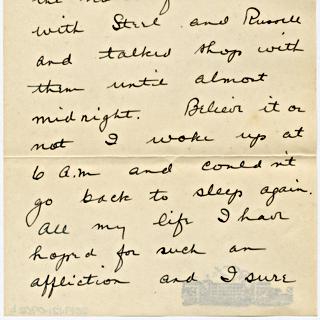 with Steel and Russell
and talked shop with
them until almost
midnight. Believe it or
not I woke up at
6 a.m and couldn't
go back to sleep again.
All my life I have
hoped for such an
affliction and I sure